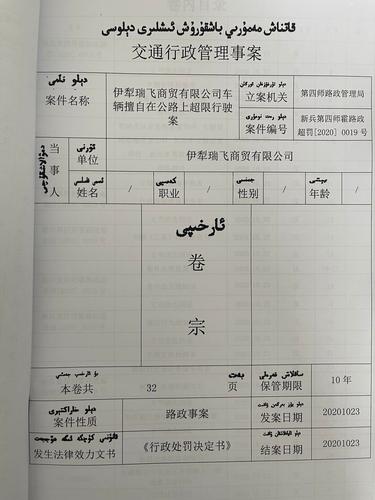 قاتناش مەمۇرىي باشقۇرۇش ئىشلىرى دېلوسى
交通行政管理事案
دېلو نامى
案件名称
伊犁瑞飞商贸有限公司车
辆擅自在公路上超限行驶
案
立案机关
第四师路政管理局
案件编号
新兵第四师霍路政
超罚[2020] 0019号
当事人
ئورنى
单位
伊犁瑞飞商贸有限公司
姓名
/
كەسپى
职业
/
جىنسى
性别
/
يېشى
年龄
/
ئارخىپى
卷
宗
本卷共
32
بەت
页
ساقلاش
保管期限
10年
案件性质
路政事案
发案日期
20201023
发生法律效力文书
《行政处罚决定书》
结案日期
20201023